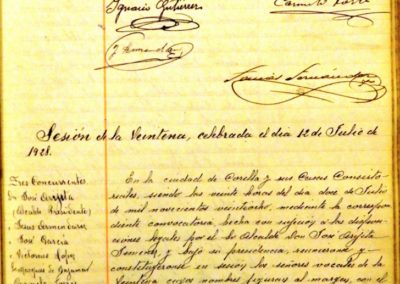 Ignacio Gutierrez
Carmelo
J. Fernandez
Tomás Fernández
Sesión de la Veintena, celebrada el día 12 de Julio de
1928.
Sres Concurrentes
Dn José Arrijita
(Alcalde Presidente)
" José García
En la ciudad de Corella y sus Casas Consisto-
riales, siendo las veinte horas del día doce de Julio
de mil novecientos veintiocho, mediante la correspon-
diente convocatoria, hecha con sujeción a las disposi-
ciones legales por el Sr Alcalde Don José Arrijita
Jimenez y bajo su presidencia, reunieronse y
constituyeronse en sesión los señores vocales de la
Veintena cuyos nombres figuran al margen, con el